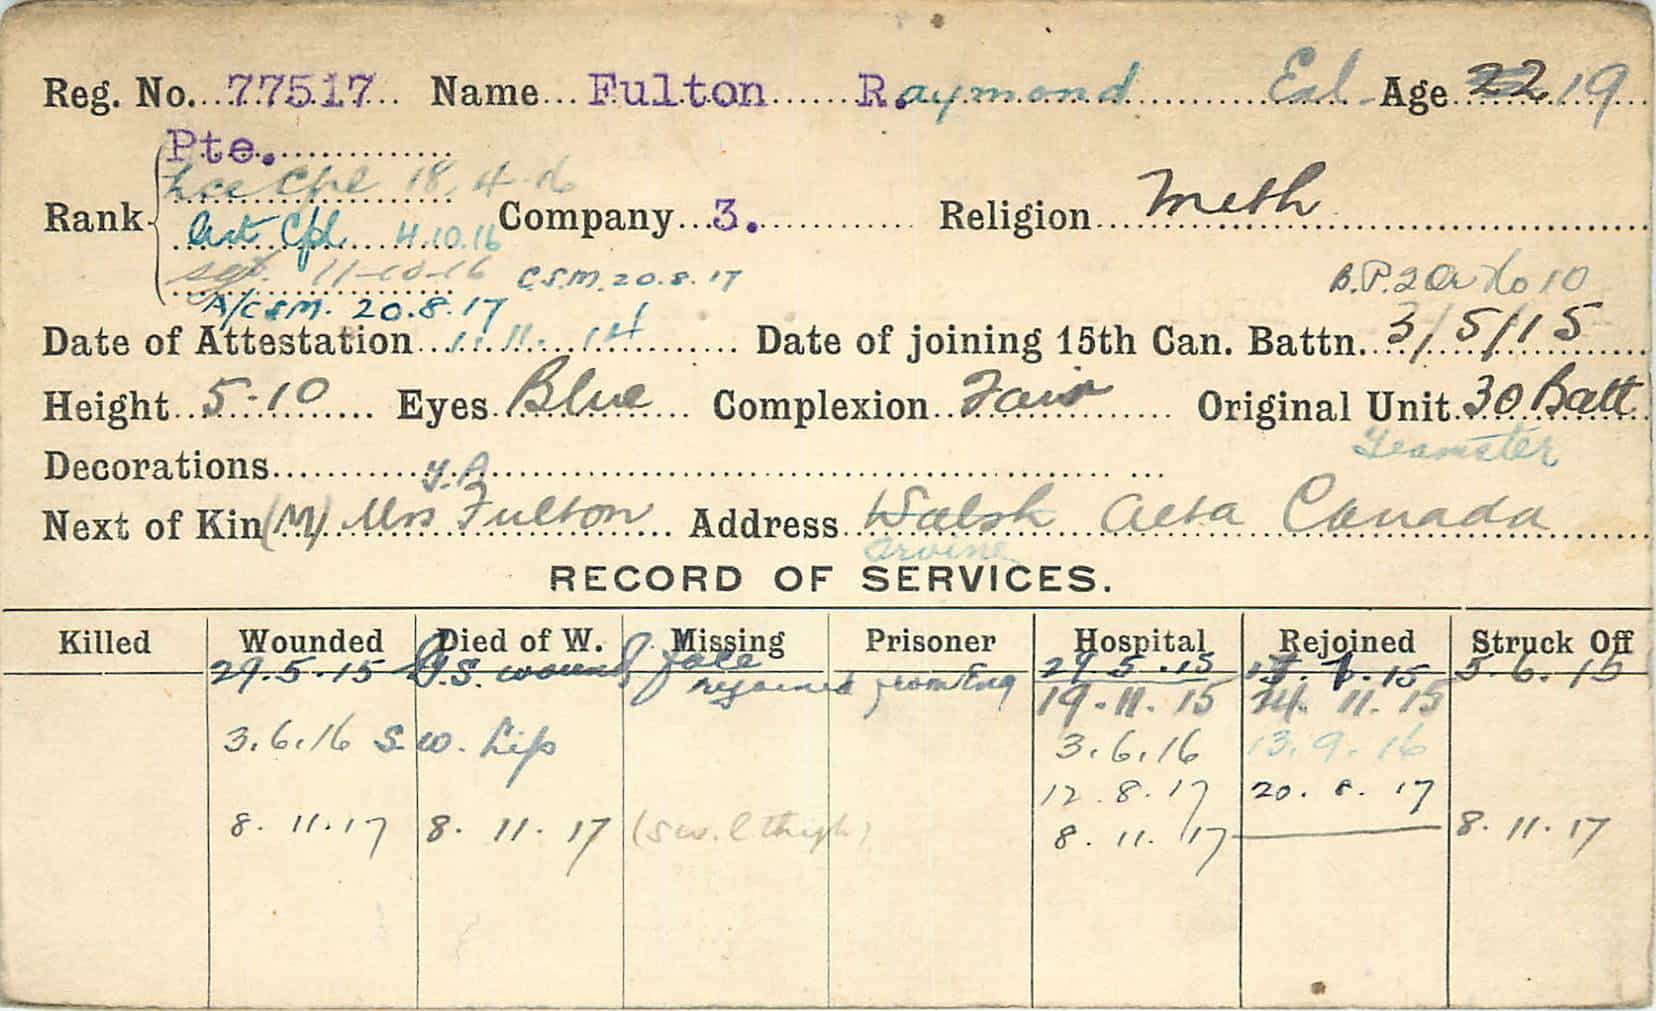 Reg. No. 77517 Name Fulton R.aymond Age 22 19
Pte.
Lce Cpl 18.4.16
Rank Act Cpl 4.10.16 Company 3. Religion Meth
Sgt. 11-10-16 C.S.M. 20.8.17 B.P. 2 Or No 10
A/CSM. 20.8.17
Date of Attestation 1.11.14 Date of joining 15th Can. Battn. 3/5/15
Height 5-10 Eyes Blue Complexion Fair Original Unit 30 Batt
Teamster
Decorations
Next of Kin (M) Mrs Fulton Address Walsh Alta Canada
Arvine
RECORD OF SERVICES.
Killed Wounded Died of W. Missing Prisoner Hospital Rejoined Struck Off
29.5.15 G.S. wound face 29.5.15 5.6.15
rejoined from Eng 19.11.15 24.11.15
3.6.16 S.W. Lip 3.6.16 13.9.16
12.8.17 20.8.17
8.11.17 8.11.17 (S.W. L thigh) 8.11.17 8.11.17